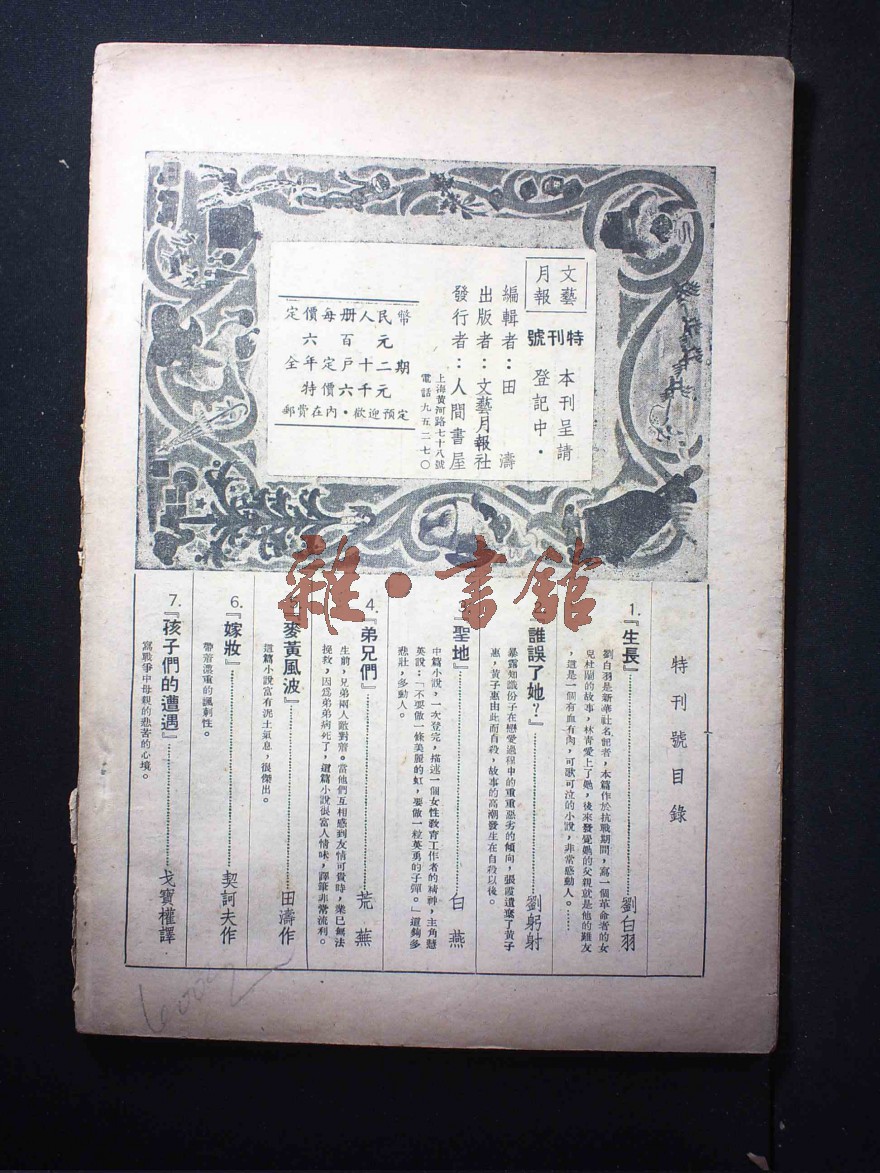 文藝
月報
特刊號
本刊呈請
登記中．
編輯者：田濤
出版者：文藝月報社
發行者：人間書屋
上海黃河路七十八號
電話九五二七〇
定價每册人民幣
六百元
全年定戶十二期
特價六千元
郵費在內·歡迎預定
特刊號目錄
1.『生長』………劉白羽
劉白羽是新華社名記者，本篇作於抗戰期間，寫一個革命者的女
兒杜蘭的故事，林青愛上了她，後來發覺她的父親就是他的難友
，這是一個有血有肉，可歌可泣的小說，非常感動人。……
誰誤了她？』………劉躬射
暴露知識份子在戀愛過程中的重重惡劣的傾向，張霞遺棄了黃子
惠，黃子惠由此而自殺，故事的高潮發生在自殺以後。
3.『聖地』………白燕
中篇小說，一次登完，描述一個女性教育工作者的精神，主角慧
英說：「不要做一條美麗的虹，要做一粒英勇的子彈。」這夠多
悲壯，多動人。
4.『弟兄們』………荒蕪
生前，兄弟兩人敵對着。當他們互相感到友情可貴時，業已無法
挽救，因爲弟弟病死了，這篇小說很富人情味，譯筆非常流利。
5.『麥黃風波』………田濤作
這篇小說富有泥土氣息，很傑出。
6.『嫁妝』………契訶夫作
帶着濃重的諷刺性。
7.『孩子們的遭遇』………戈寶權譯
寫戰爭中母親的悲苦的心境。
雜·書館